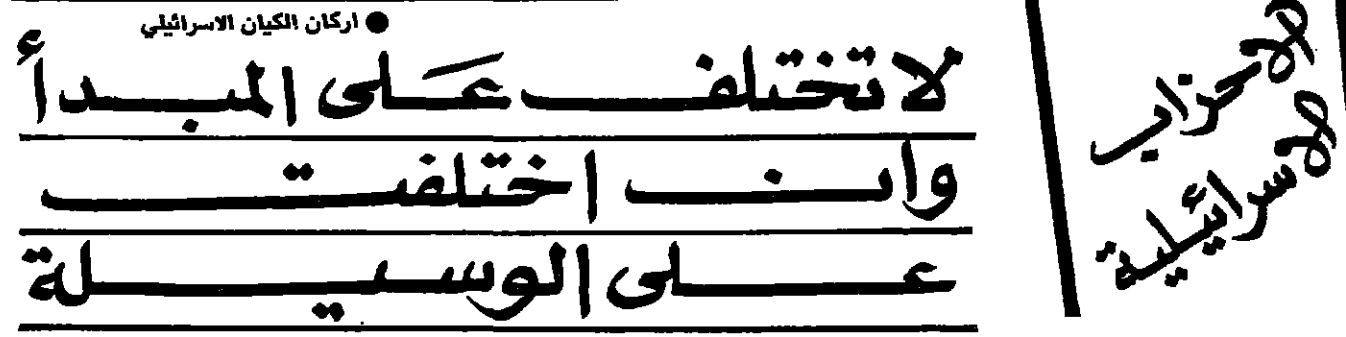 الاحزاب
الاسرائيلية
● اركان الكيان الاسرائيلي
لا تختلف على المبدأ
وان اختلفت
على الوسيلة